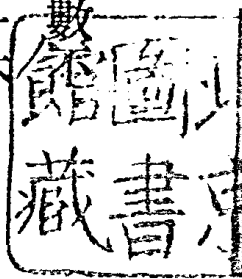 數
圖書
館藏